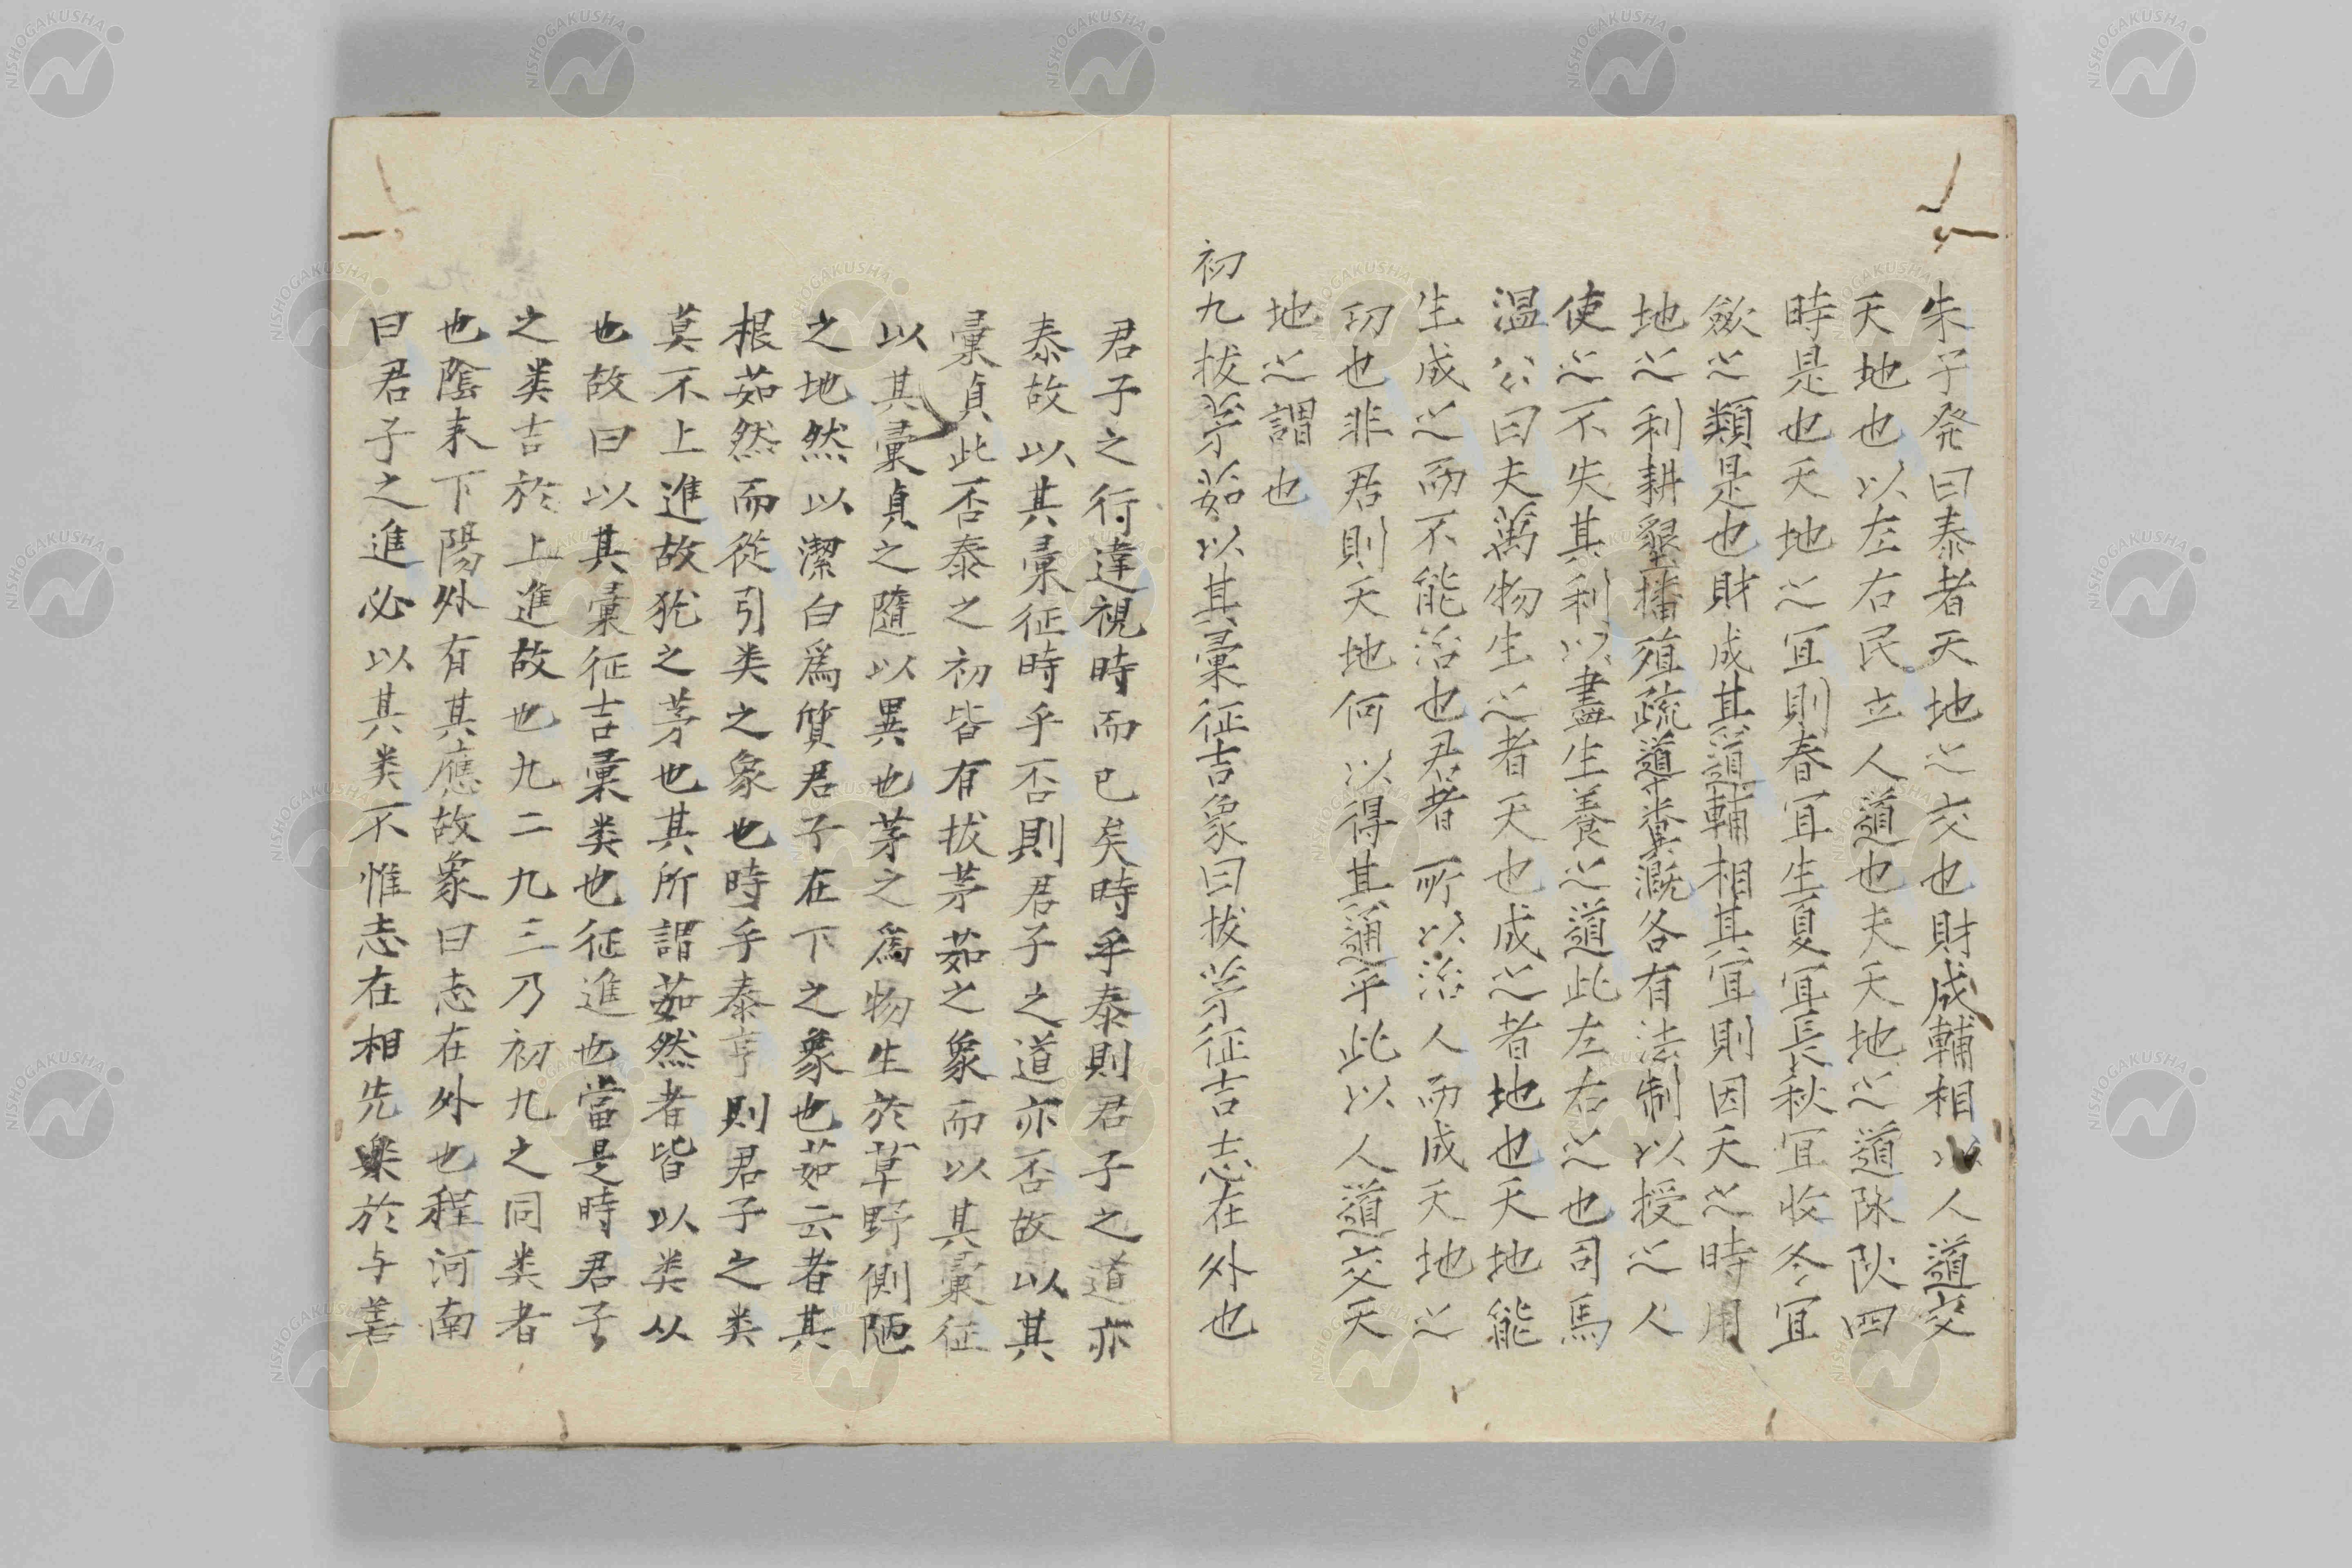 朱子発曰泰者天地之交也財成輔相以人道交
天地也以左右民立人道也夫天地之道陰陽四
時是也天地之宜則春宜生夏宜長秋宜收冬宜
斂之類是也財成其道輔相其宜則因天之時用
地之利耕墾播殖疏導糞漑各有法制以授之人
使之不失其利以盡生養之道此左右之也司馬
温公曰夫萬物生之者天也成之者地也天地能
生成之而不能治也君者所以治人而成天地之
功也非君則天地何以得其通乎此以人道交天
地之謂也
初九拔茅茹以其彙征吉象曰拔茅征吉志在外也
君子之行違視時而已矣時乎泰則君子之道亦
泰故以其彙征時乎否則君子之道亦否故以其
彙貞此否泰之初皆有拔茅茹之象而以其彙征
以其彙貞之隨以異也茅之爲物生於草野側陋
之地然以潔白爲質君子在下之象也茹云者其
根茹然而從引类之象也時乎泰亨則君子之类
莫不上進故犹之茅也其所謂茹然者皆以类从
也故曰以其彙征吉彙类也征進也當是時君子
之类吉於上進故也九二九三乃初九之同类者
也陰来下陽外有其應故象曰志在外也程河南
曰君子之進必以其类不惟志在相先樂於与善